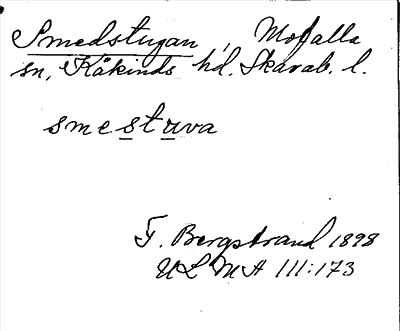 Smedstugan, Mofalla
sn, Kåkinds hd. Skarab. l.
smestuva
F. Bergstrand 1898
ULMA 111:173